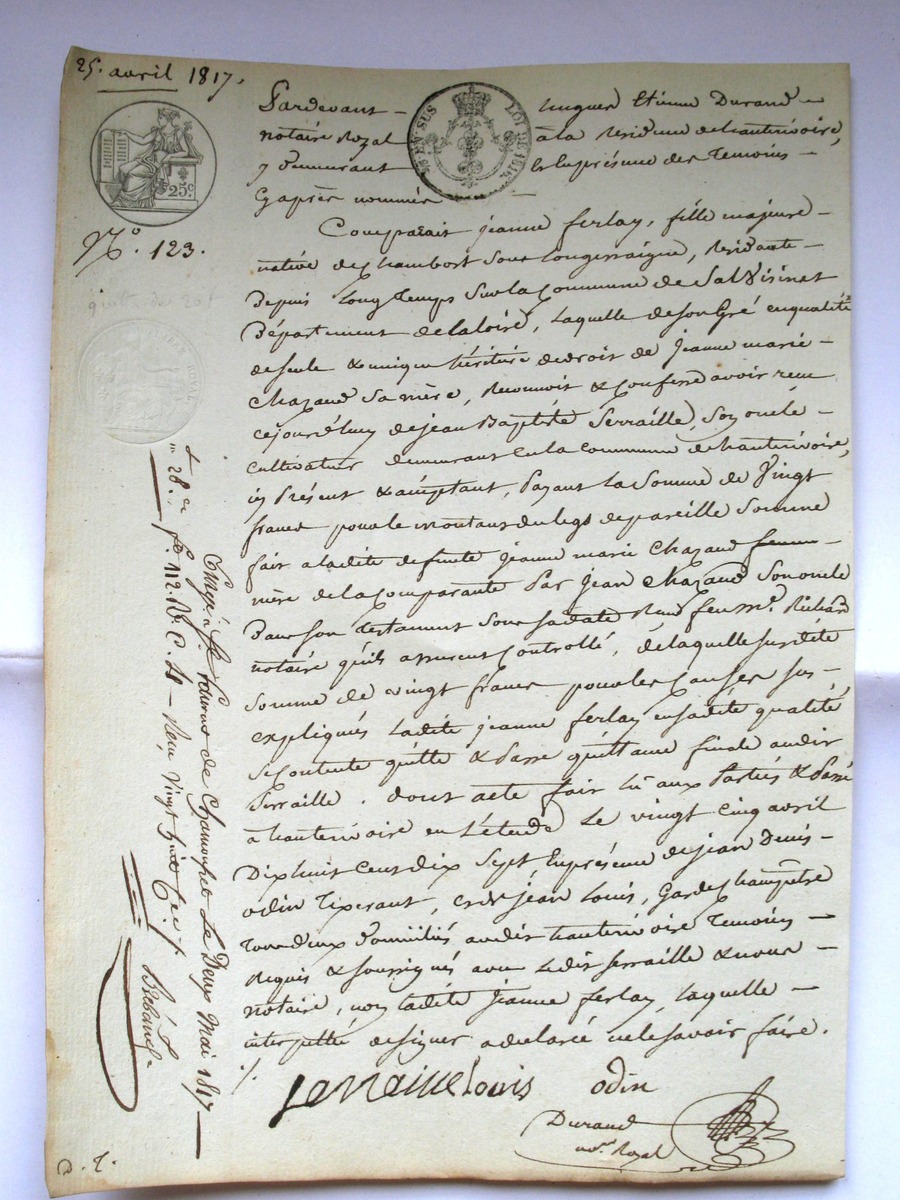 25. avril 1817.
25c
EN SUS
LOI DE 1816
No. 123.
quittance 20f
Pardevant hugues Etienne Durand
notaire Royal à la résidence de hauterivoire,
y demeurant & en présence des Temoins
Cyaprès nommés
Comparait jeanne ferlay, fille majeure
native de Chambort sous longessaigne, Residante
Depuis Long Temps sur la Commune de
Département de la loire, Laquelle de son Gré en qualité
de seule & unique héritière de droit de jeanne marie
Chazaud sa mère, Reconnoit & Confesse avoir reçu
cejourd'huy de jean Baptiste Serraille, son oncle
Cultivateur demeurant en la Commune de hauterivoire,
icy Présent & acceptant, Payant La Somme de Vingt
francs pour le montant du legs de pareille Somme
fait a ladite defunte jeanne marie Chazaud
mère de la comparante Par jean Chazaud son oncle
Dans son testament sous sa date Reçu feu me. Richard
notaire qu'ils assurent Controllé, de laquelle susdite
Somme de vingt francs pour les Causes sus
expliqués Ladite jeanne ferlay en sadite qualité
se Contente quitte & Passe quittance finale audit
Serraille. dont acte fait lu aux Parties & Passé
à hauterivoire en L'étude Le vingt cinq avril
Dix huit Cent dix Sept, En présence de jean Denis
odin Tixerant, & de jean Louis, Garde Champêtre
Tous deux domiciliés audit hauterivoire Temoins
Requis & soussignés avec Ledit Serraille & nous
notaire, non ladite jeanne ferlay, laquelle
interpellée de signer a declaré ne le savoir faire.
Serraille Louis odin
Durand
not. Royal
Enregé à St Laurent de Chamousset Le Deux Mai 1817
fo. 112 Ro. C. 4 Reçu Vingt huit
28.c
D. T.